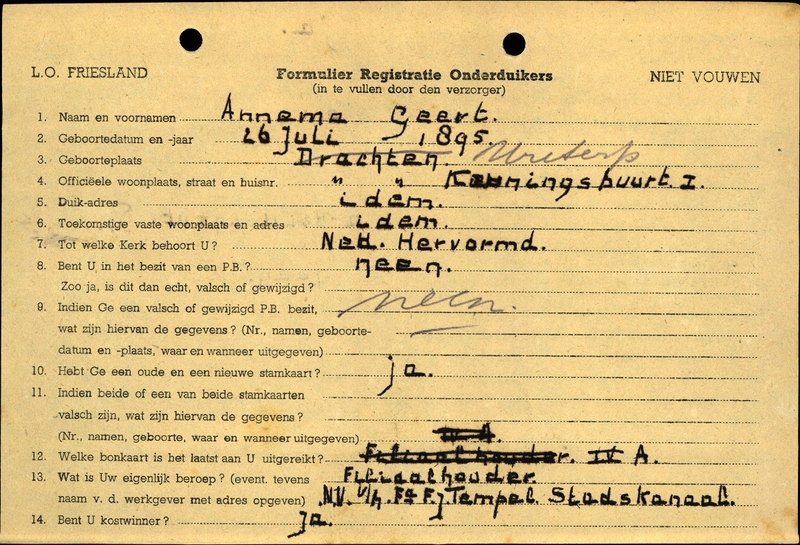 L.O. FRIESLAND Formulier Registratie Onderduikers NIET VOUWEN
(in te vullen door den verzorger)
1. Naam en voornamen Annema Geert.
2. Geboortedatum en -jaar 26 Juli 1895.
3. Geboorteplaats Drachten. Ureterp
4. Officiëele woonplaats, straat en huisnr. " " Kanningsbuurt I.
5. Duik-adres idem.
6. Toekomstige vaste woonplaats en adres idem.
7. Tot welke Kerk behoort U? Ned. Hervormd.
8. Bent U in het bezit van een P.B.? neen.
Zoo ja, is dit dan echt, valsch of gewijzigd?
9. Indien Ge een valsch of gewijzigd P.B. bezit, neen.
wat zijn hiervan de gegevens? (Nr., namen, geboorte-
datum en -plaats, waar en wanneer uitgegeven)
10. Hebt Ge een oude en een nieuwe stamkaart? ja.
11. Indien beide of een van beide stamkaarten
valsch zijn, wat zijn hiervan de gegevens?
(Nr., namen, geboorte, waar en wanneer uitgegeven) IV A.
12. Welke bonkaart is het laatst aan U uitgereikt? Filiaalhouder. IV A.
13. Wat is Uw eigenlijk beroep? (event. tevens Filiaalhouder
naam v. d. werkgever met adres opgeven) N.V. v/h. F& F.J Tempel. Stadskanaal.
14. Bent U kostwinner? ja.